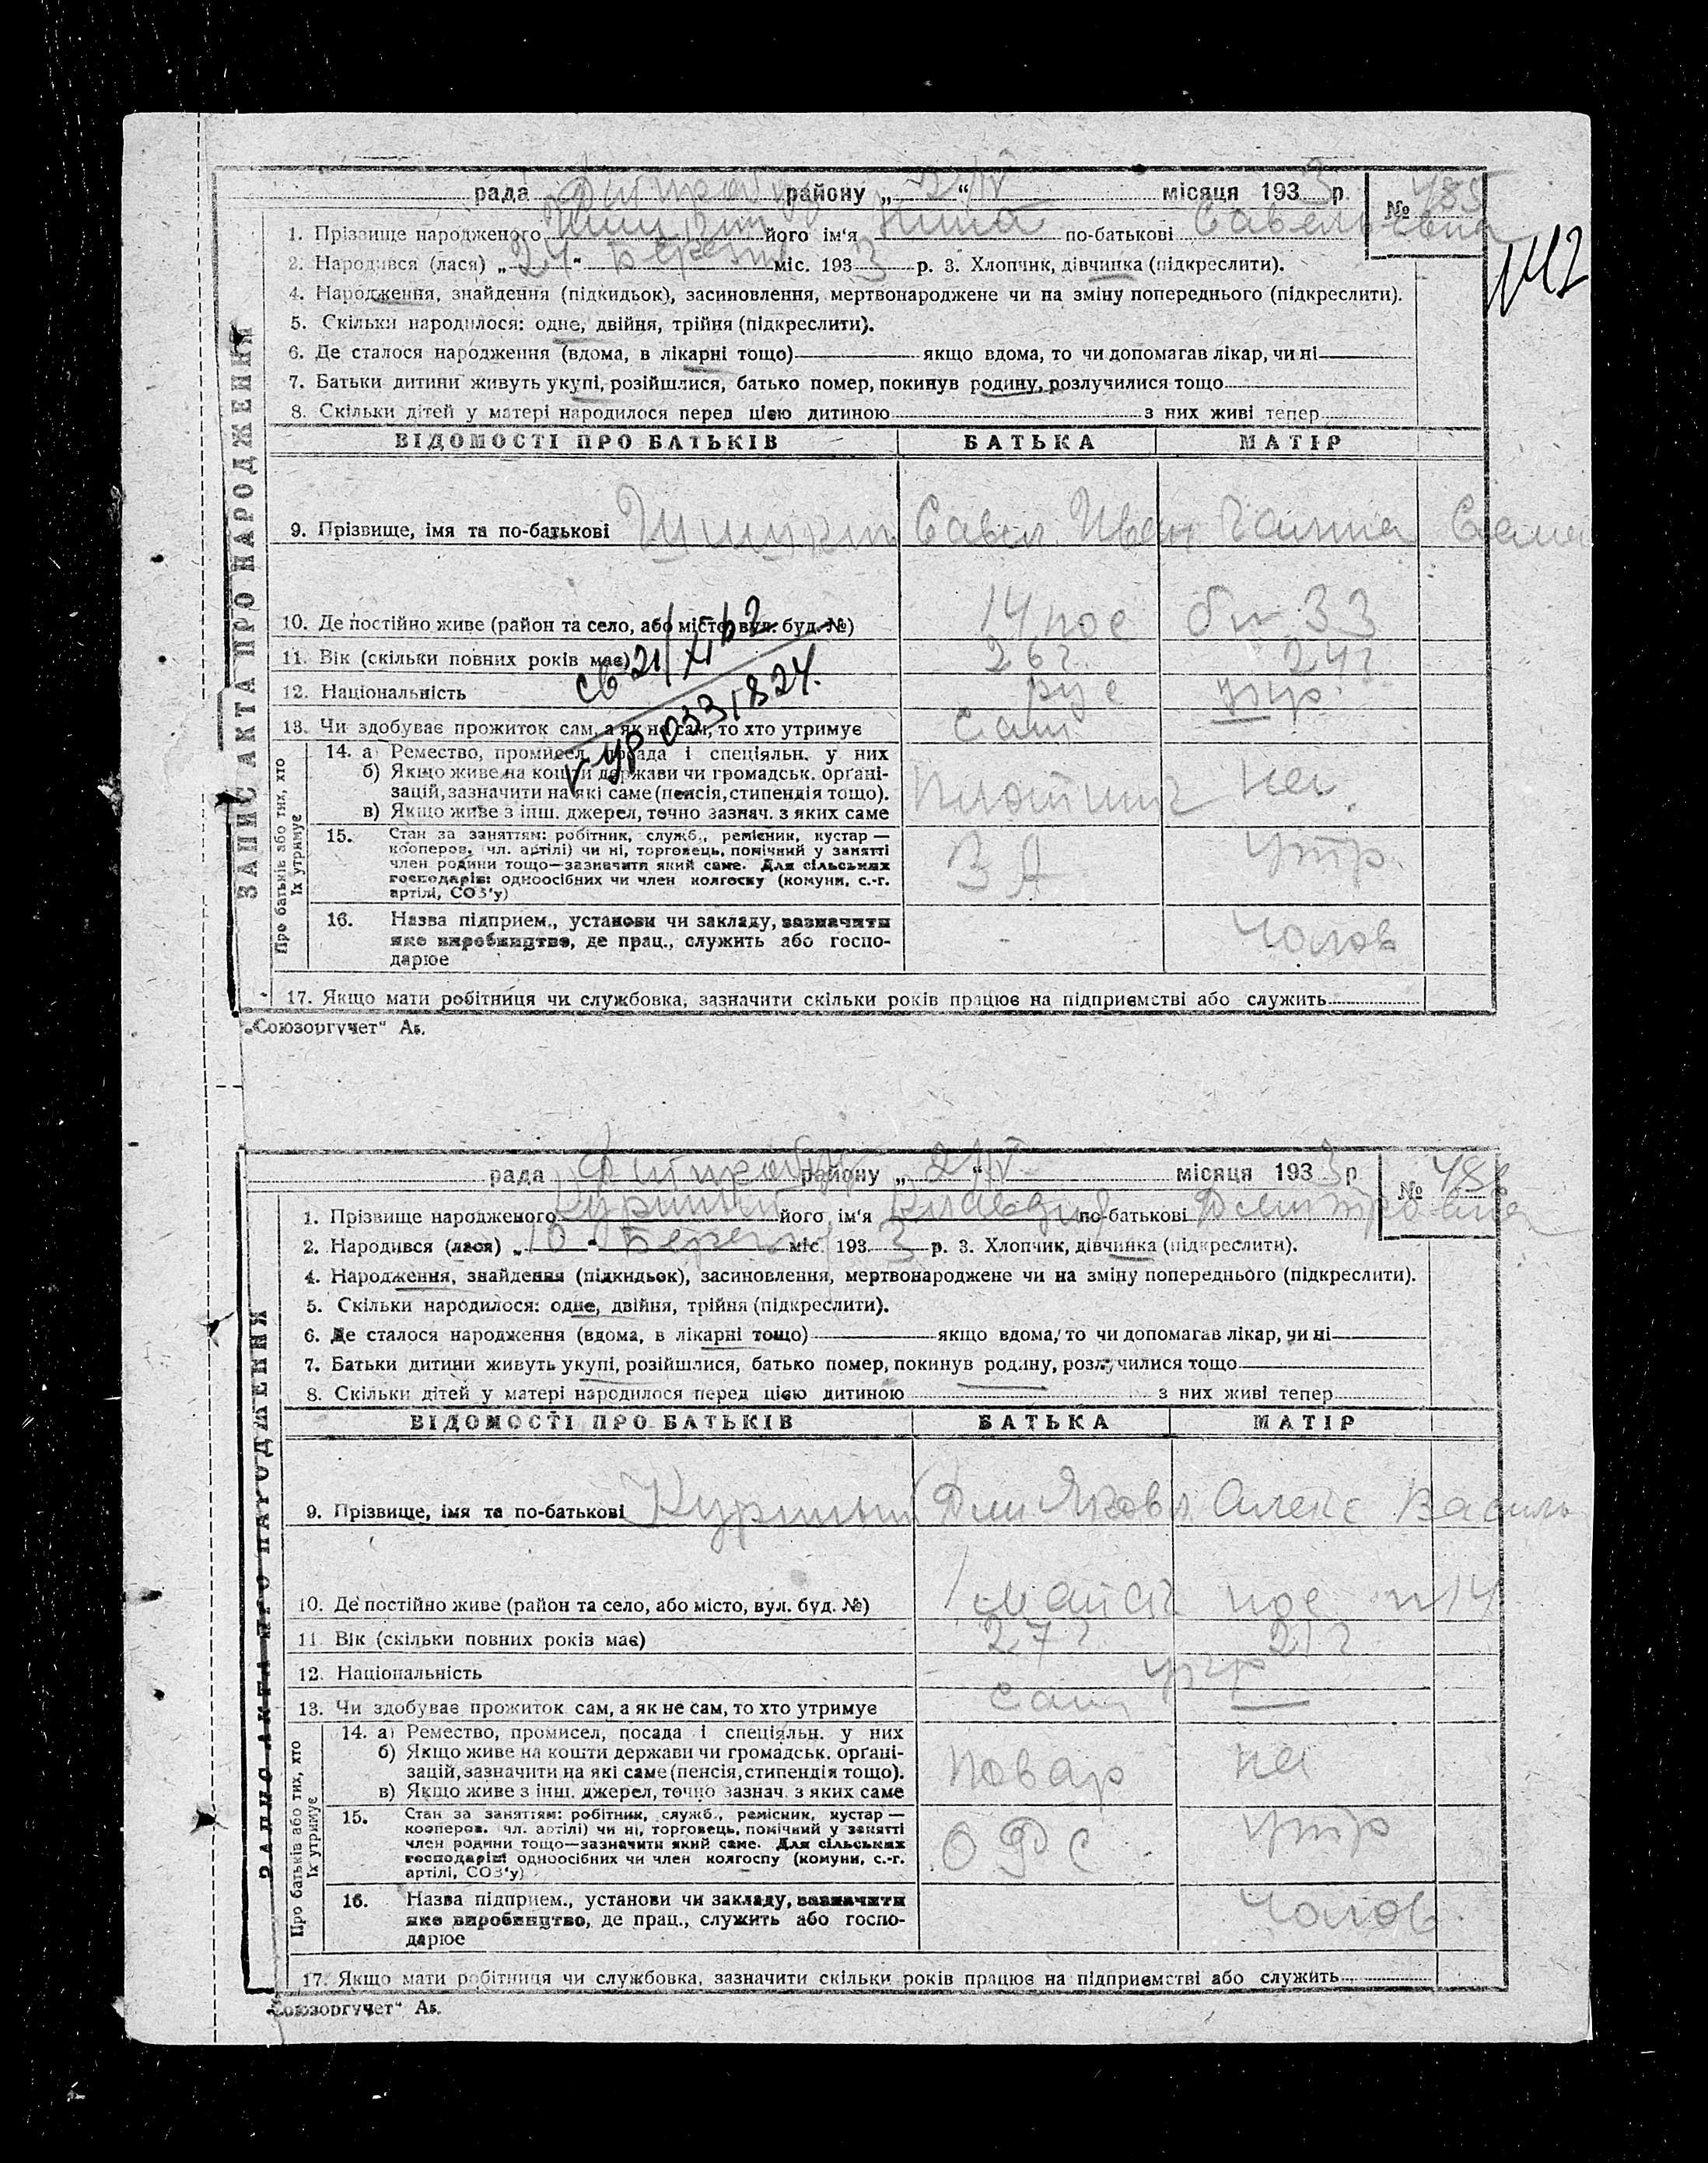 рада району „ 2/IV “ місяця 1933 р. № 485
1. Прізвище народженого його ім'я Нина по-батькові Савельевна
142
2. Народився (лася) „ 24 “ Березня міс. 1933 р. 3. Хлопчик, дівчинка (підкреслити).
4. Народження, знайдення (підкидьок), засиновлення, мертвонароджене чи на зміну попереднього (підкреслити).
5. Скільки народилося: одне, двійня, трійня (підкреслити).
6. Де сталося народження (вдома, в лікарні тощо) якщо вдома, то чи допомагав лікар, чи ні
7. Батьки дитини живуть укупі, розійшлися, батько помер, покинув родину, розлучилися тощо
8. Скільки дітей у матері народилося перед цією дитиною з них живі тепер
ЗАПИС АКТА ПРО НАРОДЖЕННЯ
ВІДОМОСТІ ПРО БАТЬКІВ БАТЬКА МАТІР
9. Прізвище, імя та по-батькові Савел. Иван Галина Семе
10. Де постійно живе (район та село, або місто, вул. буд. №) 14 пос бл 33
11. Вік (скільки повних років має) 26 г. 24 г
св 21/XI
12. Національність рус укр.
УР 0331824.
13. Чи здобуває прожиток сам, а як не сам, то хто утримує сам
Про батьків або тих, хто їх утримує
14. а) Ремество, промисел, посада і спеціяльн. у них
б) Якщо живе на кошти держави чи громадськ. органі-
зацій, зазначити на які саме (пенсія, стипендія тощо). плотник не
в) Якщо живе з інш. джерел, точно зазнач. з яких саме
15. Стан за заняттям: робітник, служб., ремісник, кустар —
кооперов. чл. артілі) чи ні, торговець, помічний у занятті
член родини тощо—зазначити який саме. Для сільських
господарів: одноосібних чи член колгоску (комуни, с.-г.
артілі, СОЗ'у) ЗА утр.
16. Назва підприєм., установи чи закладу, зазначити
яке виробництво, де прац., служить або госпо-
дарює - чолов
17. Якщо мати робітниця чи службовка, зазначити скільки років працює на підприємстві або служить
„Союзоргучет“ Ак.
рада району „ 2/IV “ місяця 1933 р № 486
1. Прізвище народженого його ім'я по-батькові Дмитровна
2. Народився (лася) „ 10 “ Березня міс. 1933 р. 3. Хлопчик, дівчинка (підкреслити).
4. Народження, знайдення (підкидьок), засиновлення, мертвонароджене чи на зміну попереднього (підкреслити).
5. Скільки народилося: одне, двійня, трійня (підкреслити).
6. Де сталося народження (вдома, в лікарні тощо) якщо вдома, то чи допомагав лікар, чи ні
7. Батьки дитини живуть укупі, розійшлися, батько помер, покинув родину, розлучилися тощо
8. Скільки дітей у матері народилося перед цією дитиною з них живі тепер
ЗАПИС АКТА ПРО НАРОДЖЕННЯ
ВІДОМОСТІ ПРО БАТЬКІВ БАТЬКА МАТІР
9. Прізвище, імя та по-батькові Дми Яковл Алекс Василь
10. Де постійно живе (район та село, або місто, вул. буд. №) пос 14
11. Вік (скільки повних років має) 27 г 21 г
12. Національність укр
13. Чи здобуває прожиток сам, а як не сам, то хто утримує сам
Про батьків або тих, хто їх утримує
14. а) Ремество, промисел, посада і спеціяльн. у них
б) Якщо живе на кошти держави чи громадськ. органі-
зацій, зазначити на які саме (пенсія, стипендія тощо). повар не
в) Якщо живе з інш. джерел, точно зазнач. з яких саме
15. Стан за заняттям: робітник, служб., ремісник, кустар —
кооперов. чл. артілі) чи ні, торговець, помічний у занятті
член родини тощо—зазначити який саме. Для сільських
господарів: одноосібних чи член колгоспу (комуни, с.-г.
артілі, СОЗ'у) ОРС утр
16. Назва підприєм., установи чи закладу, зазначити
яке виробництво, де прац., служить або госпо-
дарює чолов.
17. Якщо мати робітниця чи службовка, зазначити скільки років працює на підприємстві або служить
„Союзоргучет“ Ак.